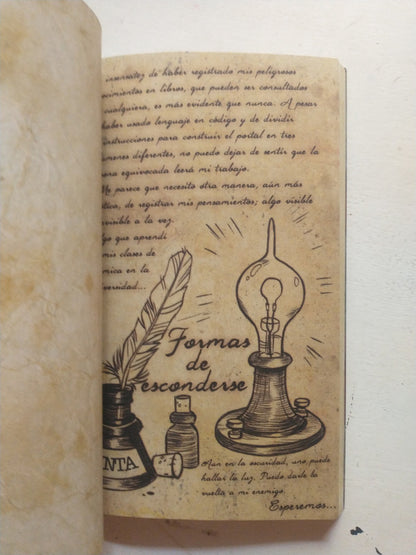 insensatez de haber registrado mis peligrosos
ocimientos en libros, que pueden ser consultados
cualquiera, es más evidente que nunca. A pesar
haber usado lenguaje en código y de dividir
instrucciones para construir el portal en tres
menes diferentes, no puedo dejar de sentir que la
ona equivocada leerá mi trabajo.
Me parece que necesito otra manera, aún más
tica, de registrar mis pensamientos; algo visible
nvisible a la vez.
lgo que aprendí
mis clases de
mica en la
versidad...
Formas
de
esconderse
INTA
Aún en la oscuridad, uno puede
hallar la luz. Puedo darle la
vuelta a mi enemigo.
Esperemos...